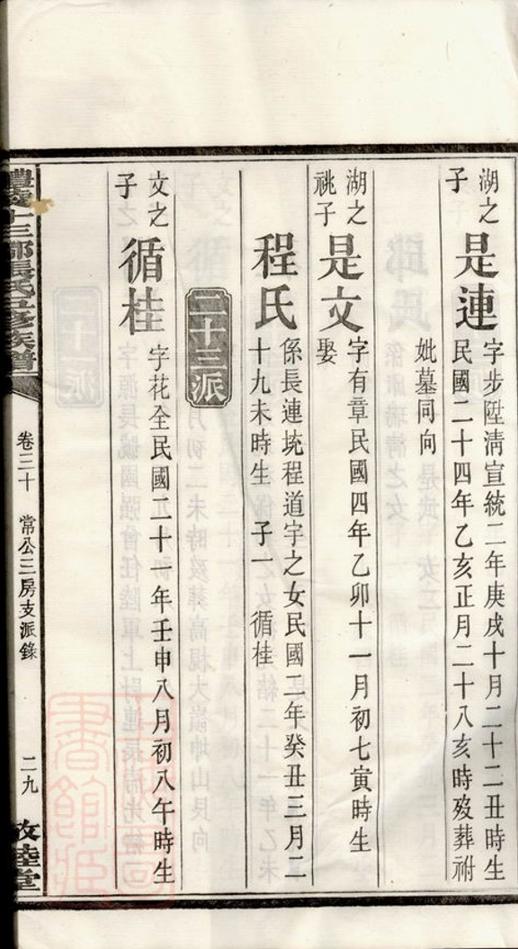 湖之子
是連
字步陞清宣統二年庚戌十月二十二丑時生
民國二十四年乙亥正月二十八亥時歿葬祔
妣墓同向
湖之祧子
是文
字有章民國四年乙卯十一月初七寅時生
娶
程氏
係長連坑程道宇之女民國二年癸丑三月二
十九未時生 子一 循桂
二十三派
文之子
循桂
字花全民國二十一年壬申八月初八午時生
醴陵十三都張氏五修族譜
卷三十
常公三房支派錄
二九
敦睦堂